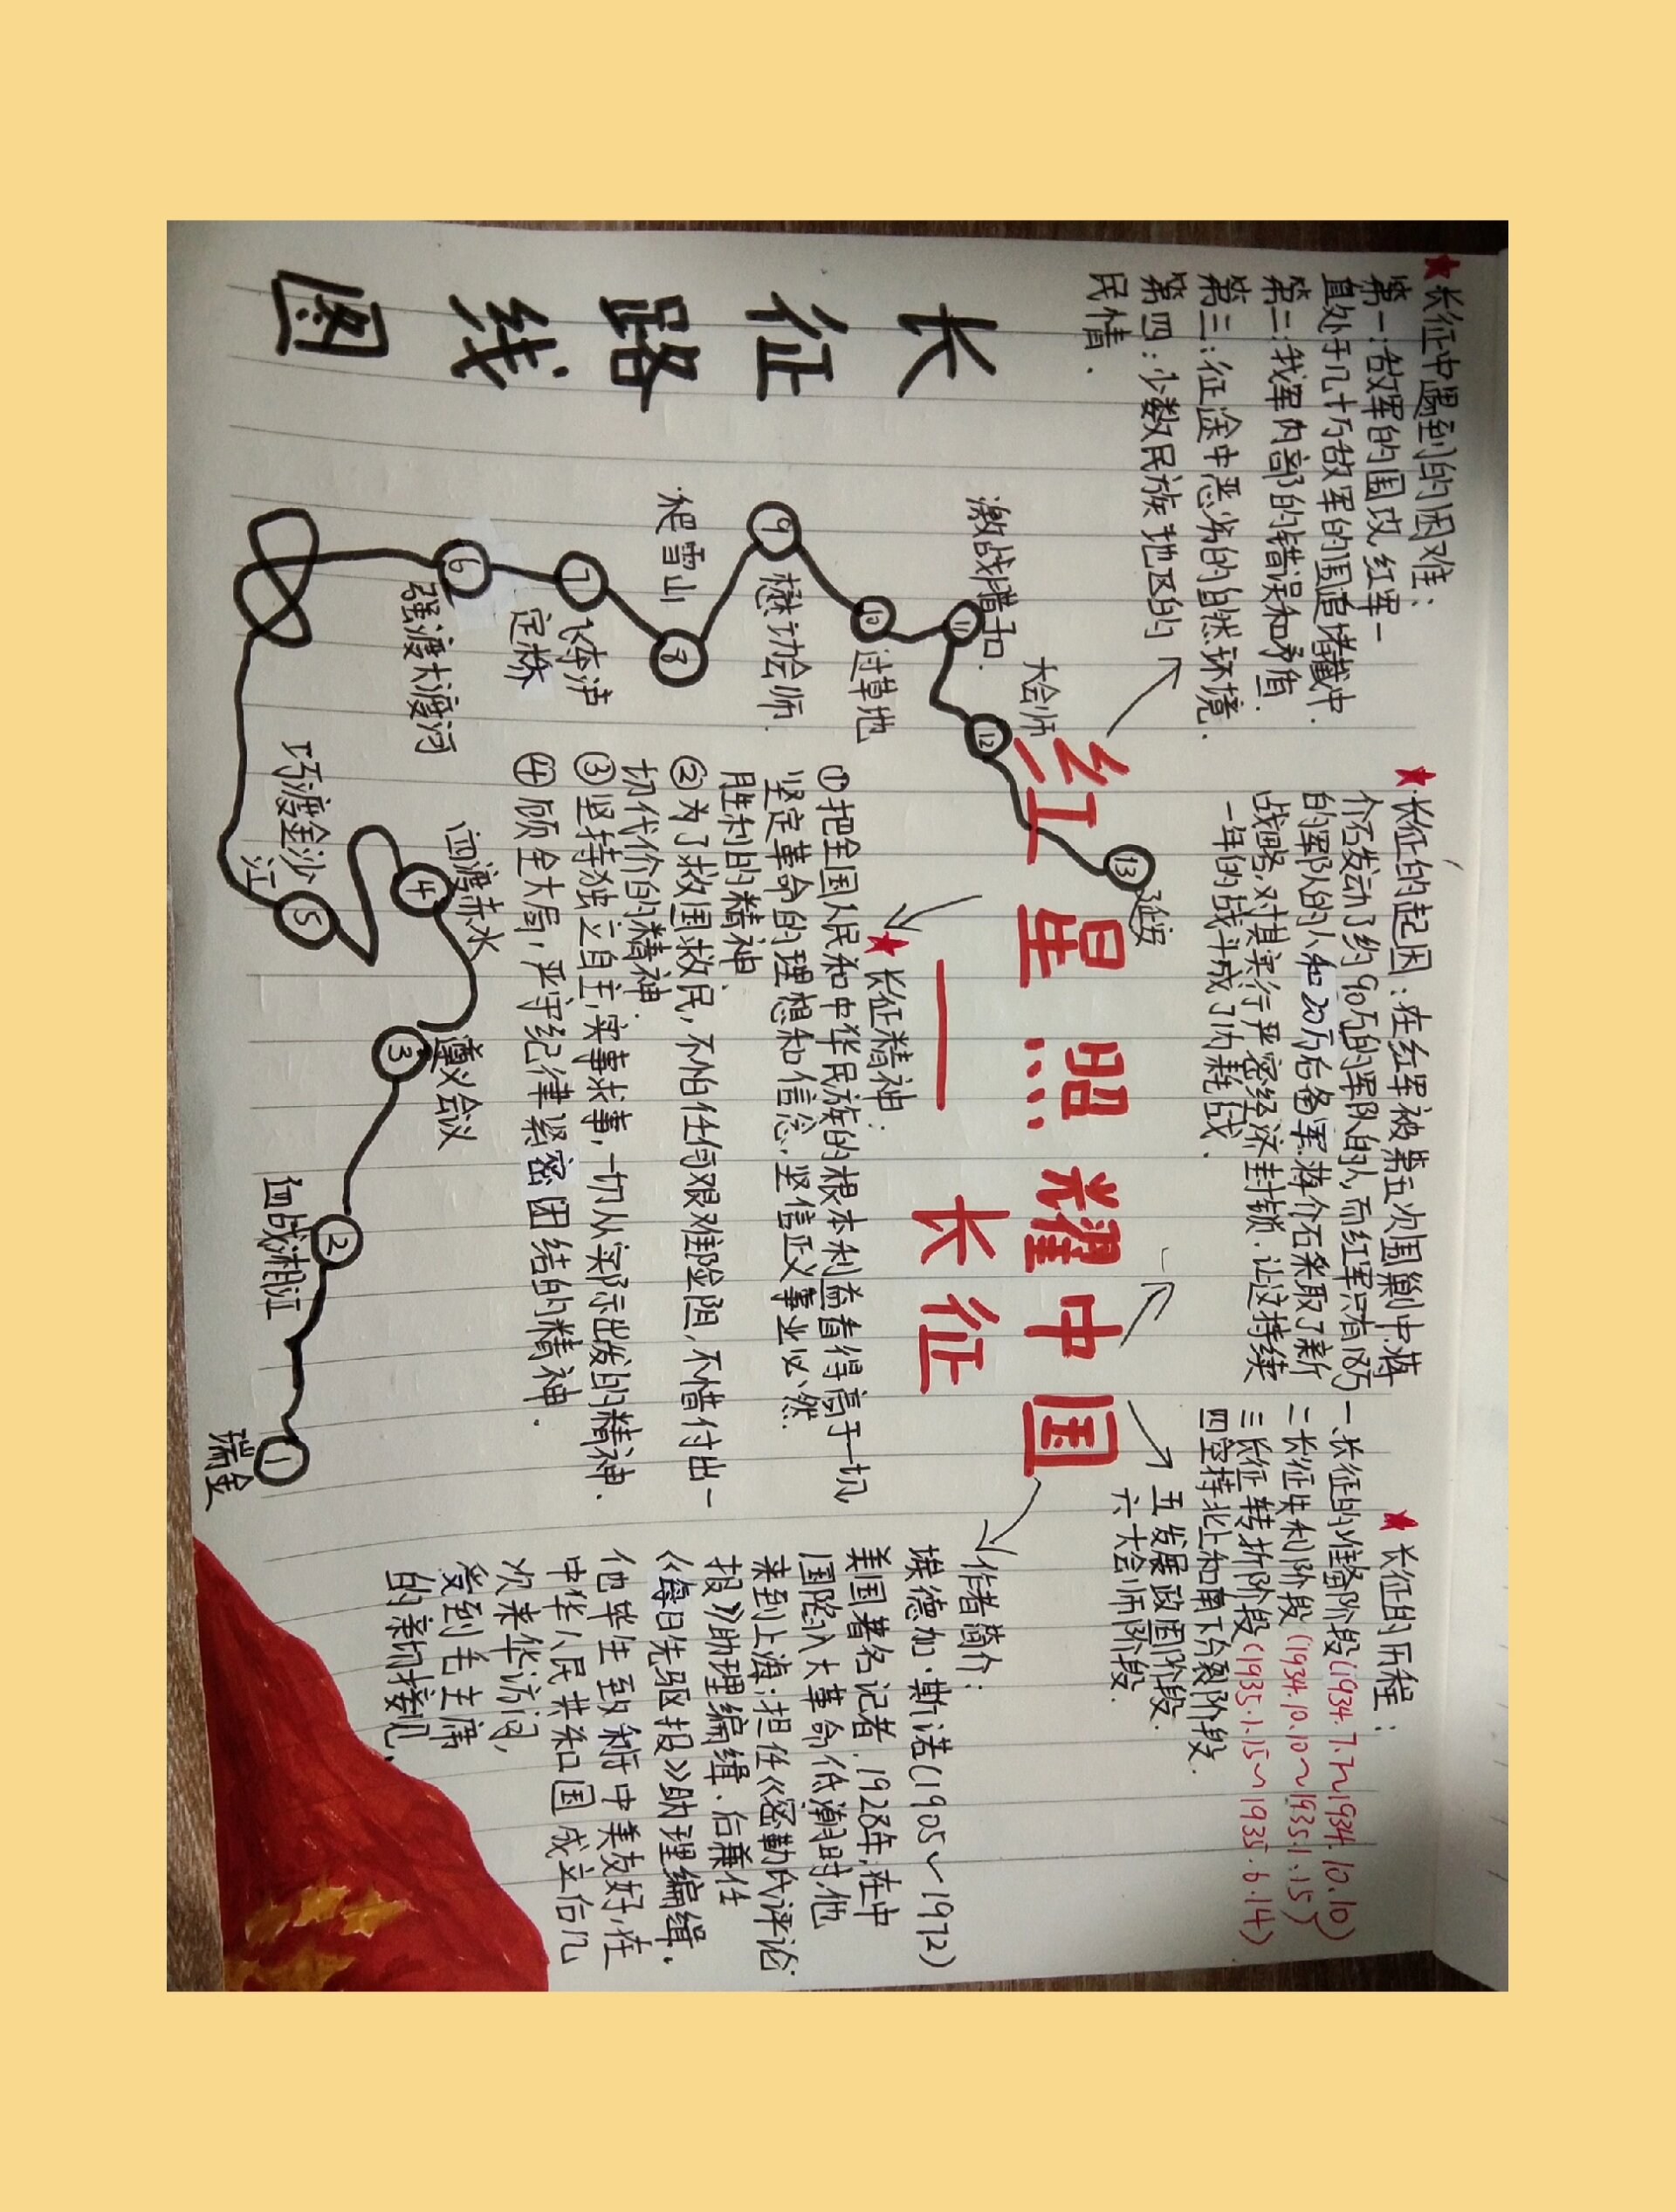 ★长征中遇到的困难：
第一：敌军的围攻，红军一
直处于几十万敌军的围追堵截中.
第二：我军内部的错误和矛盾.
第三：征途中恶劣的自然环境.
第四：少数民族地区的
民情.
★长征的起因：在红军被第五次围剿中,蒋
介石发动了约90万的军队的人,而红军只有18万
的军队的人和20万后备军.蒋介石采取了新
战略,对其实行严密经济封锁.让这持续
一年的战斗成了内耗战.
★长征的历程：
一.长征的准备阶段(1934.7.7~1934.10.10)
二长征失利阶段(1934.10.10~1935.1.15)
三长征转折阶段(1935.1.15~1935.6.14)
四坚持北上和南下分裂阶段.
五发展政固阶段.
六大会师阶段.
红星照耀中国
——长征
作者简介：
埃德加·斯诺(1905~1972)
美国著名记者.1928年,在中
国陷入大革命低潮时,他
来到上海;担任《密勒氏评论
报》助理编缉.后兼任
《每日先驱报》助理编缉.
他毕生致力于中美友好,在
中华人民共和国成立后几
次来华访问,
受到毛主席
的亲切接见.
★长征精神：
①把全国人民和中华民族的根本利益看得高于一切
坚定革命的理想和信念.坚信正义事业必然
胜利的精神
②为了救国救民,不怕任何艰难险阻,不惜付出一
切代价的精神.
③坚持独立自主,实事求事,一切从实际出发的精神.
④顾全大局,严守纪律紧密团结的精神.
长征路线图
①瑞金
②血战湘江
③遵义会议
④四渡赤水
⑤巧渡金沙
江
⑥强渡大渡河
⑦飞夺泸
定桥
⑧爬雪山
⑨懋功会师.
⑩过草地
⑪激战腊子口.
⑫大会师
⑬延安